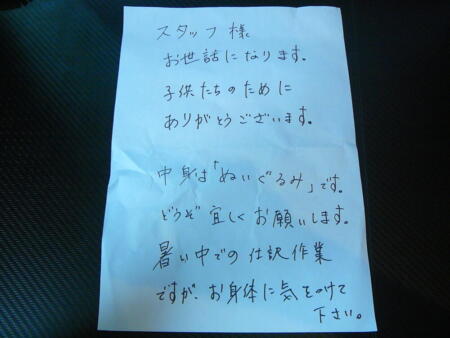 スタッフ様
お世話になります。
子供たちのために
ありがとうございます。
中身は「ぬいぐるみ」です。
どうぞ宜しくお願いします。
暑い中での仕訳作業
ですが、お身体に気をつけて
下さい。